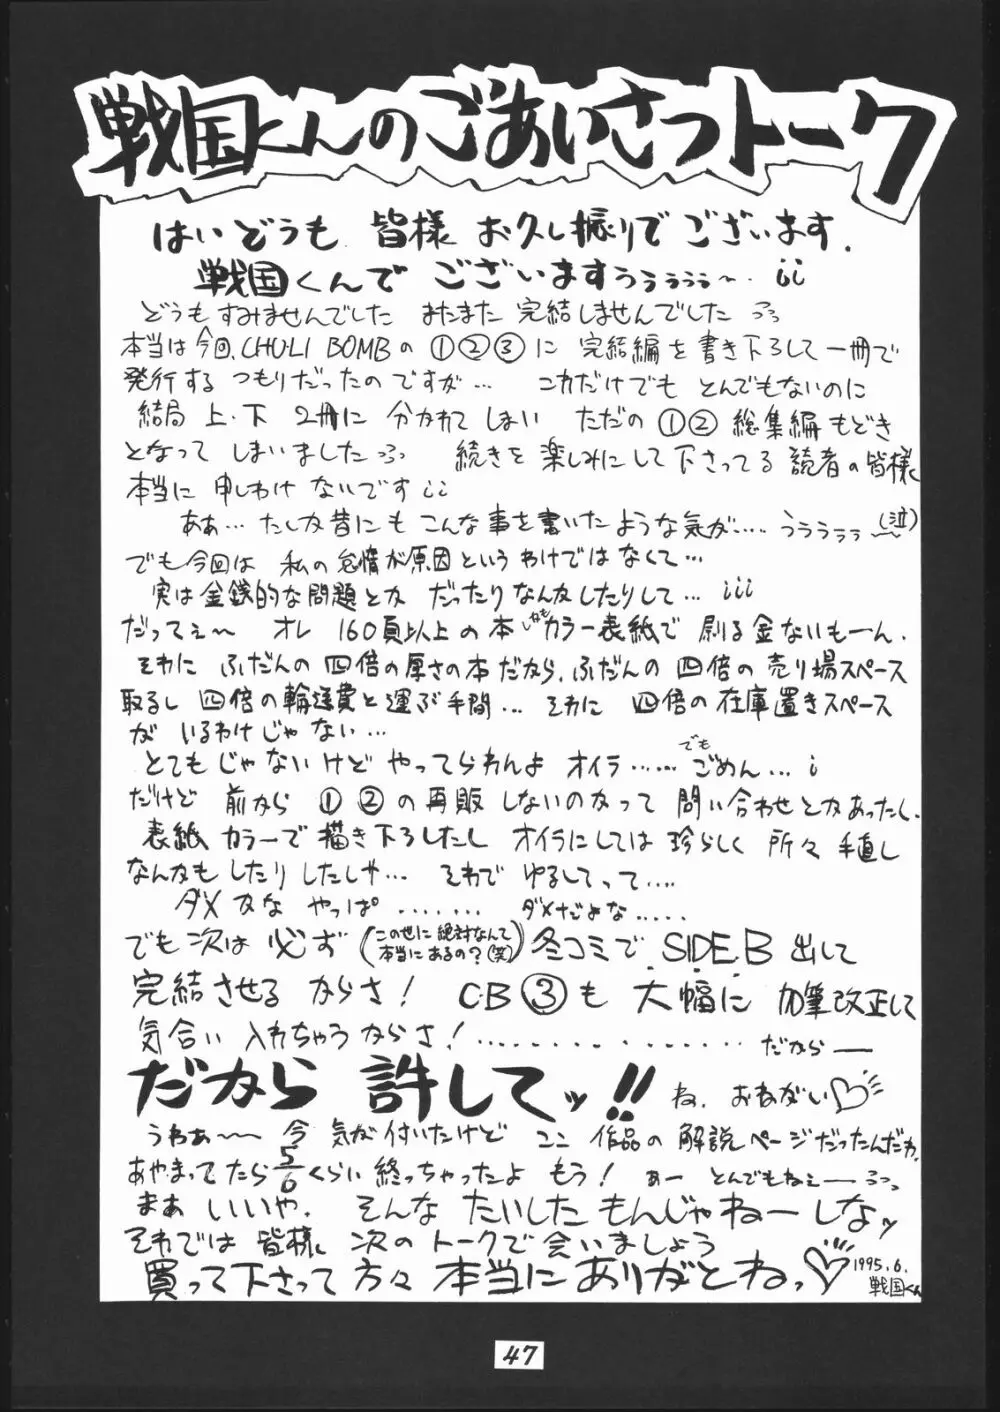 戦国くんのごあいさつトーク
はいどうも 皆様 お久し振りでございます.
戦国くんでございますぅぅぅぅぅ〜.. ii
どうもすみませんでした またまた 完結しませんでした
本当は今回、CHULI BOMBの ①②③に 完結編を書き下ろして一冊で
発行する つもりだったのですが… これだけでも とんでもないのに
結局 上・下 2冊に 分かれて しまい ただの ①② 総集編もどき
となって しまいました 続きを 楽しみにして下さってる 読者の皆様
本当に 申しわけ ないです ii
ああ… たしか昔にも こんな事を書いたような気が….. うぅぅぅぅ(泣)
でも今回は 私の怠惰が原因というわけではなくて…
実は金銭的な問題とか だったりなんかしたりして… iii
だってぇ〜 オレ 160頁以上の本しかもカラー表紙で 刷る金ないもーん.
それに ふだんの 四倍の厚さの本だから、ふだんの 四倍の 売り場スペース
取るし 四倍の輸送費と運ぶ手間… それに 四倍の在庫置きスペース
が いるわけじゃない…
とてもじゃないけど やってらわんよ オイラ…… でもごめん… i
だけど 前から ①②の再販 しないのかって 問い合わせとかあったし、
表紙 カラーで描き下ろしたし オイラにしては 珍らしく 所々 手直し
なんかも したりしたしゃ… それで ゆるしてって….
ダメかな やっぱ ....... ダメだよな.....
でも次は 必ず(この世に絶対なんて本当にあるの?(笑))冬コミで SIDE.B 出して
完結させる からさ! C・B③も 大幅に 加筆改正して
気合い 入れちゃうからさ!................ だから—
だから 許してッ!! ね、おねがい♡
うわぁ〜〜 今 気が付いたけど ここ 作品の解説ページだったんだわ、
あやまってたら5/6くらい終っちゃったよ もう! あー とんでもねぇー
まぁ いいや、 そんな たいした もんじゃねーしなッ
それでは 皆様、次のトークで会いましょう
買って下さって方々 本当にありがとねっ♡ 1995.6.
戦国くん
47